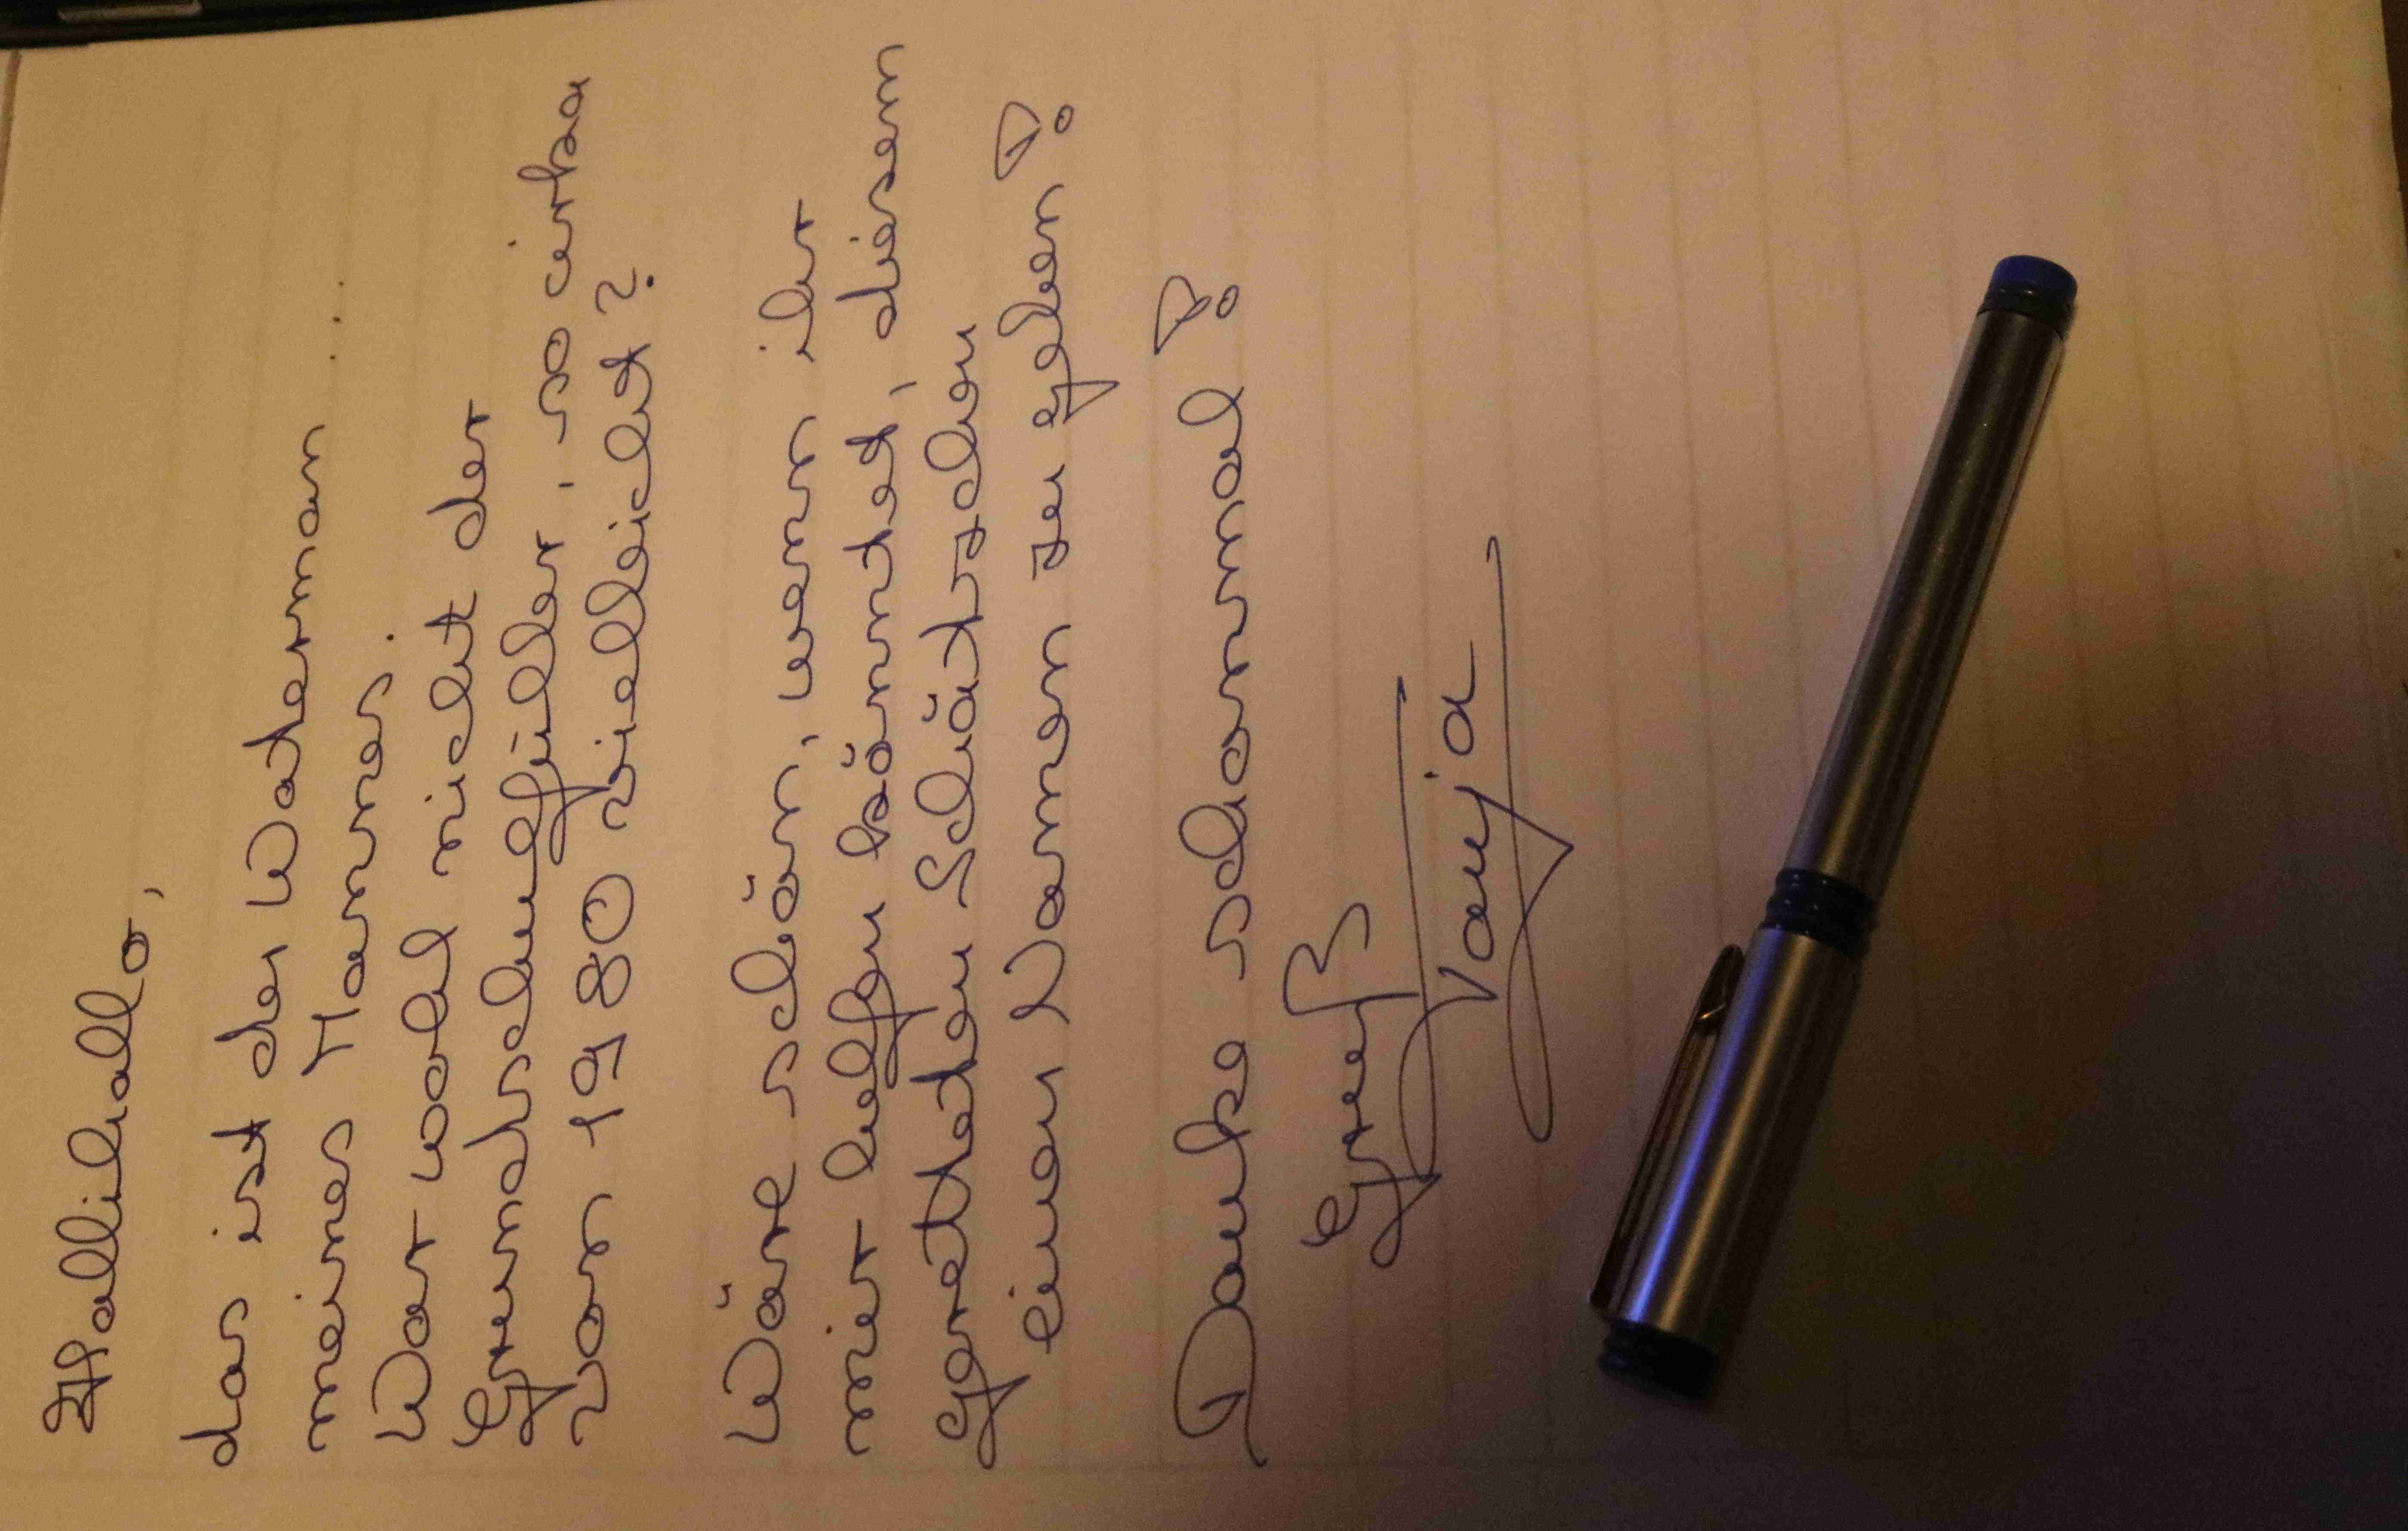 Hallihallo,
das ist der Waterman ...
meines Mannes.
War wohl nicht der
Grundschulfüller, so cirka
von 1980 vielleicht?
Wäre schön, wenn ihr
mir helfen könntet, diesem
geretteten Schätzchen
einen Namen zu geben!
Danke schonmal!
Gruß
Vanja